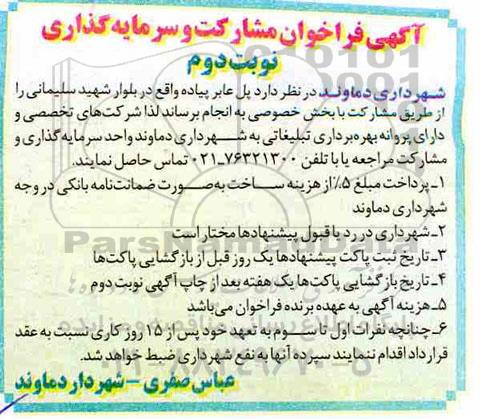 آگهی فراخوان مشارکت و سرمایه گذاری
نوبت دوم
شهرداری دماوند در نظر دارد پل عابر پیاده واقع در بلوار شهید سلیمانی را
از طریق مشارکت با بخش خصوصی به انجام برساند لذا شرکت‌های تخصصی و
دارای پروانه بهره‌برداری تبلیغاتی به شهرداری دماوند واحد سرمایه گذاری و
مشارکت مراجعه یا با تلفن ۷۶۳۲۱۳۰۰-۰۲۱ تماس حاصل نمایند.
۱ـ پرداخت مبلغ ۵٪ از هزینه ساخت به‌صورت ضمانت‌نامه بانکی در وجه
شهرداری دماوند
۲ـ شهرداری در رد یا قبول پیشنهادها مختار است
۳ـ تاریخ ثبت پاکت پیشنهادها یک روز قبل از بازگشایی پاکت‌ها
۴ـ تاریخ بازگشایی پاکت‌ها یک هفته بعد از چاپ آگهی نوبت دوم
۵ـ هزینه آگهی به عهده برنده فراخوان می‌باشد
۶ـ چنانچه نفرات اول تا سوم به تعهد خود پس از ۱۵ روز کاری نسبت به عقد
قرارداد اقدام ننمایند سپرده آنها به نفع شهرداری ضبط خواهد شد.
عباس صفری – شهردار دماوند
ParsNamadData